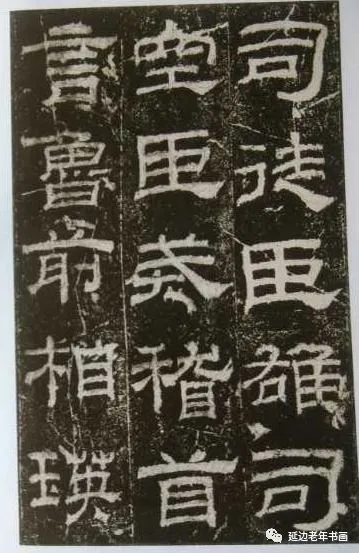 司徒臣雄司
空臣戒稽首
言魯前相瑛
延边老年书画